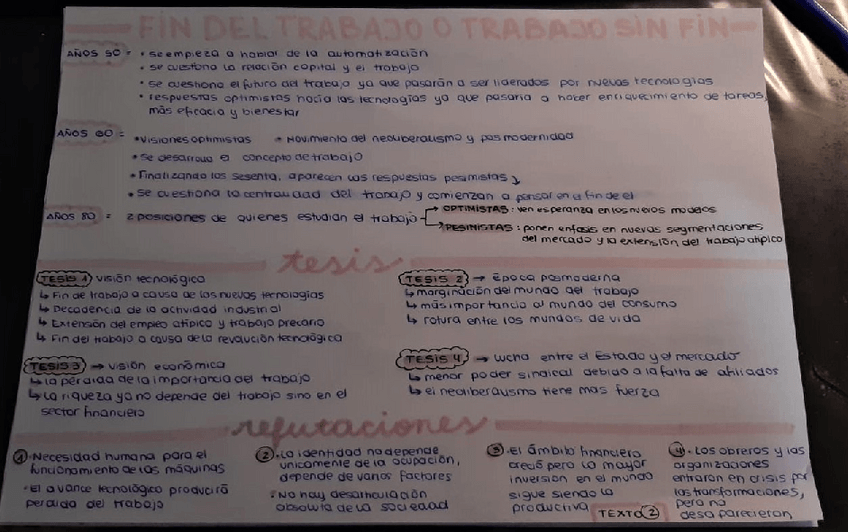 FIN DEL TRABAJO O TRABAJO SIN FIN
AÑOS 50 = • se empieza a hablar de la automatización
• se cuestiona la relación capital y el trabajo
• se cuestiona el futuro del trabajo ya que pasarán a ser liderados por nuevas tecnologías
• respuestas optimistas hacia las tecnologías ya que pasaría a haber enriquecimiento de tareas,
más eficacia y bienestar
AÑOS 60 = • visiones optimistas • Movimiento del neoliberalismo y posmodernidad
• se desarrolla el concepto de trabajo
• Finalizando los sesenta, aparecen las respuestas pesimistas ↴
• se cuestiona la centralidad del trabajo y comienzan a pensar en el fin de el
AÑOS 80 = 2 posiciones de quienes estudian el trabajo → OPTIMISTAS: ven esperanza en los nuevos modelos
→ PESIMISTAS: ponen énfasis en nuevas segmentaciones
del mercado y la extensión del trabajo atípico
tesis
TESIS 1 visión tecnológico
↳ Fin de trabajo a causa de las nuevas tecnologías
↳ Decadencia de la actividad industrial
↳ Extensión del empleo atípico y trabajo precario
↳ Fin del trabajo a causa de la revolución tecnológica
TESIS 2 → Época posmoderna
↳ marginación del mundo del trabajo
↳ más importancia al mundo del consumo
↳ rotura entre los mundos de vida
TESIS 3 → visión económica
↳ la pérdida de la importancia del trabajo
↳ La riqueza ya no depende del trabajo sino en el
sector financiero
TESIS 4 → lucha entre el Estado y el mercado
↳ menor poder sindical debido a la falta de afiliados
↳ el neoliberalismo tiene mas fuerza
refutaciones
1 • Necesidad humana para el
funcionamiento de las máquinas
• El avance tecnológico producirá
perdida del trabajo
2 • La identidad no depende
unicamente de la ocupación,
depende de varios factores
• No hay desarticulación
absoluta de la sociedad
3 • el ámbito financiero
creció pero la mayor
inversión en el mundo
sigue siendo la
productiva
4 • Los obreros y las
organizaciones
entraron en crisis por
las transformaciones,
pero no
desaparecieron
TEXTO 2